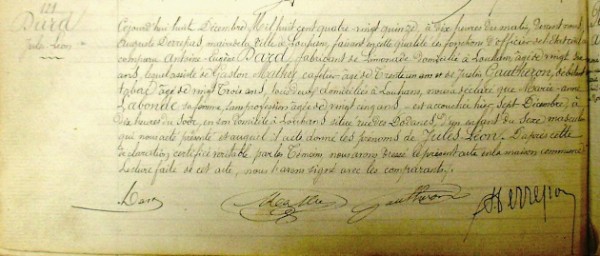 121
Dara
Jules Léon
Cejourd'hui huit Décembre Mil huit cent quatre-vingt quinze, à dix heures du matin, devant nous,
Auguste Derrepas, maire de la ville de Louhans, faisant en cette qualité les fonctions d'officier de l'état civil, a
comparu Antoine-Eugène Dara, fabricant de limonade domicilié à Louhans, âgé de vingt
ans, lequel assisté de Gaston Mathey cafetier âgé de Trente un ans et de Justin Gautheron, débitant de
tabac, âgé de vingt Trois ans, tous deux domiciliés à Louhans, nous a déclaré que Marie-Anne
Labonde sa femme, sans profession, âgée de vingt cinq ans, est accouchée hier, sept Décembre, à
dix heures du soir, en son domicile à Louhans situé rue des Dôdânes, d'un enfant du sexe masculin
qu'il nous a présenté et auquel il a donné les prénoms de Jules Léon. D'après cette
déclaration certifiée véritable par les Témoins, nous avons dressé le présent acte en la maison commune &
Lecture faite de cet acte, nous l'avons signé avec les comparants.
Dara Mathey Gautheron Derrepas